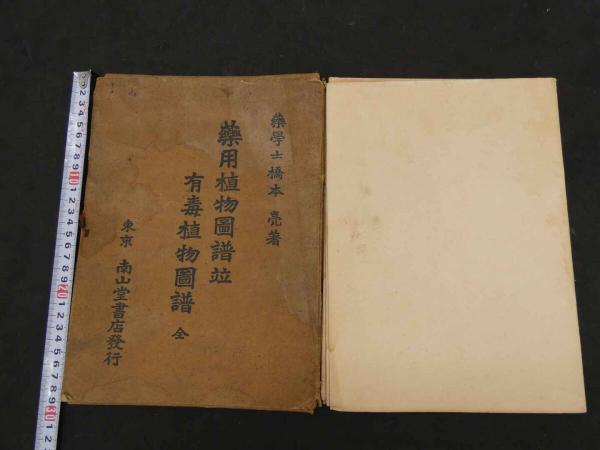 藥學士橋本亮著
藥用植物圖譜竝
有毒植物圖譜 全
東京 南山堂書店發行
2 3 4 5 6 7 8 9 10 1 2 3 4 5 6 7 8 9 20 1 2 3 4 5 6 7 8 9 30 1